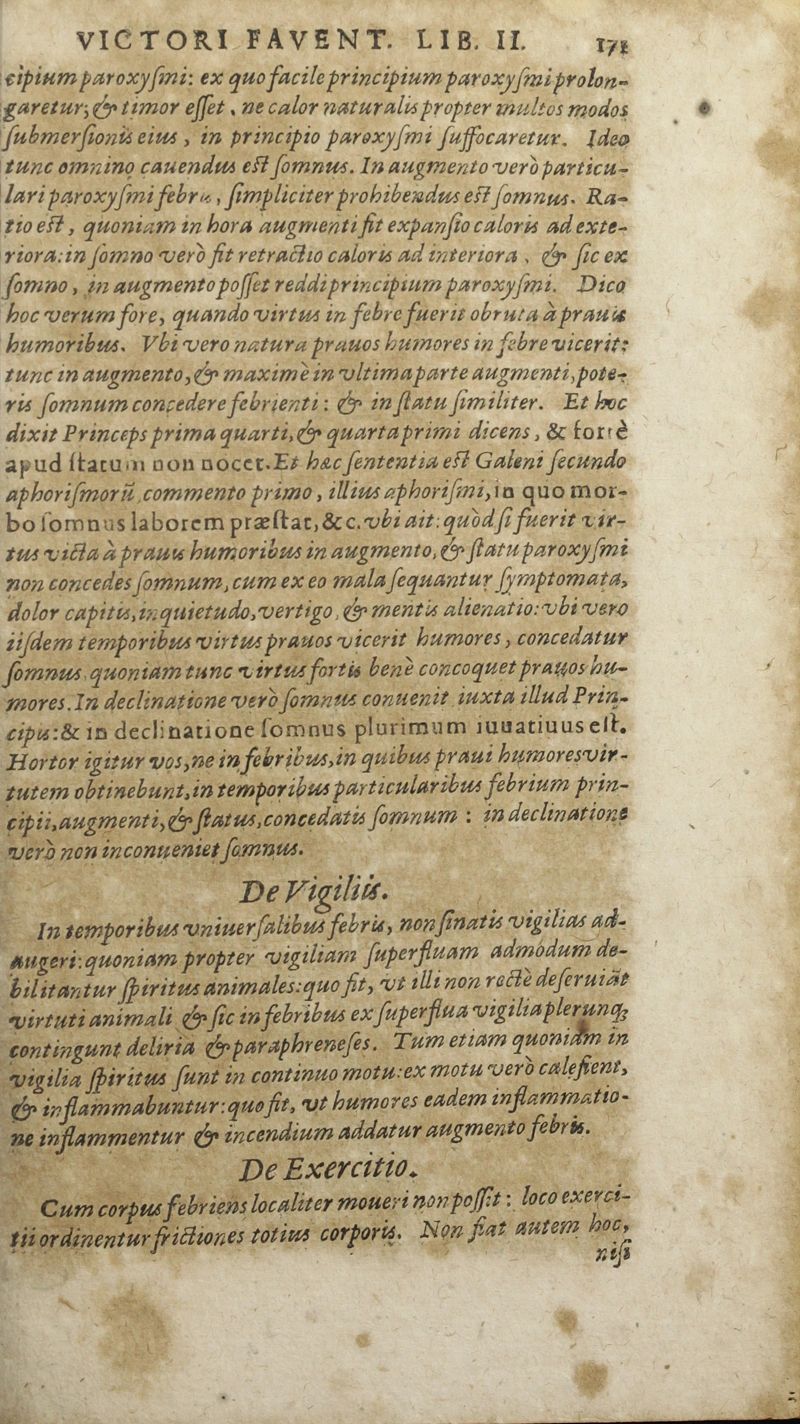 VICTORI FAVENT. LIB. II. 171
cipium paroxyſmi: ex quo facile principium paroxyſmi prolon-
garetur; & timor eſſet, ne calor naturalis propter multos modos
ſubmerſionis eius, in principio paroxyſmi ſuffocaretur. Ideo
tunc omnino cauendus eſt ſomnus. In augmento verò particu-
lari paroxyſmi febris, ſimpliciter prohibendus eſt ſomnus. Ra-
tio eſt, quoniam in hora augmenti fit expanſio caloris ad exte-
riora: in ſomno verò fit retractio caloris ad interiora, & ſic ex
ſomno, in augmento poſſet reddi principium paroxyſmi. Dico
hoc verum fore, quando virtus in febre fuerit obruta à prauis
humoribus. Vbi vero natura prauos humores in febre vicerit:
tunc in augmento, & maximè in vltima parte augmenti, pote-
ris ſomnum concedere febrienti: & in ſtatu ſimiliter. Et hoc
dixit Princeps prima quarti, & quarta primi dicens, & fortè
apud ſtatum non nocet. Et hæc ſententia eſt Galeni ſecundo
aphoriſmorū commento primo, illius aphoriſmi, in quo mor-
bo ſomnus laborem præſtat, &c. vbi ait: quòd ſi fuerit vir-
tus victa à prauis humoribus in augmento, & ſtatu paroxyſmi
non concedes ſomnum, cum ex eo mala ſequantur ſymptomata,
dolor capitis, inquietudo, vertigo, & mentis alienatio: vbi vero
iiſdem temporibus virtus prauos vicerit humores, concedatur
ſomnus, quoniam tunc virtus fortis benè concoquet prauos hu-
mores. In declinatione verò ſomnus conuenit iuxta illud Prin-
cipis: & in declinatione ſomnus plurimum iuuatiuus eſt.
Hortor igitur vos, ne in febribus, in quibus praui humores vir-
tutem obtinebunt, in temporibus particularibus febrium prin-
cipii, augmenti, & ſtatus, concedatis ſomnum: in declinatione
verò non inconueniet ſomnus.
De Vigiliis.
In temporibus vniuerſalibus febris, non ſinatis vigilias ad-
augeri: quoniam propter vigiliam ſuperfluam admodum de-
bilitantur ſpiritus animales: quo fit, vt illi non rectè deſeruiāt
virtuti animali & ſic in febribus ex ſuperflua vigilia plerunq;
contingunt deliria & paraphreneſes. Tum etiam quoniam in
vigilia ſpiritus ſunt in continuo motu: ex motu verò calefient,
& inflammabuntur: quo fit, vt humores eadem inflammatio-
ne inflammentur & incendium addatur augmento febris.
De Exercitio.
Cum corpus febriens localiter moueri non poſſit: loco exerci-
tii ordinentur frictiones totius corporis. Non fiat autem hoc,
niſi